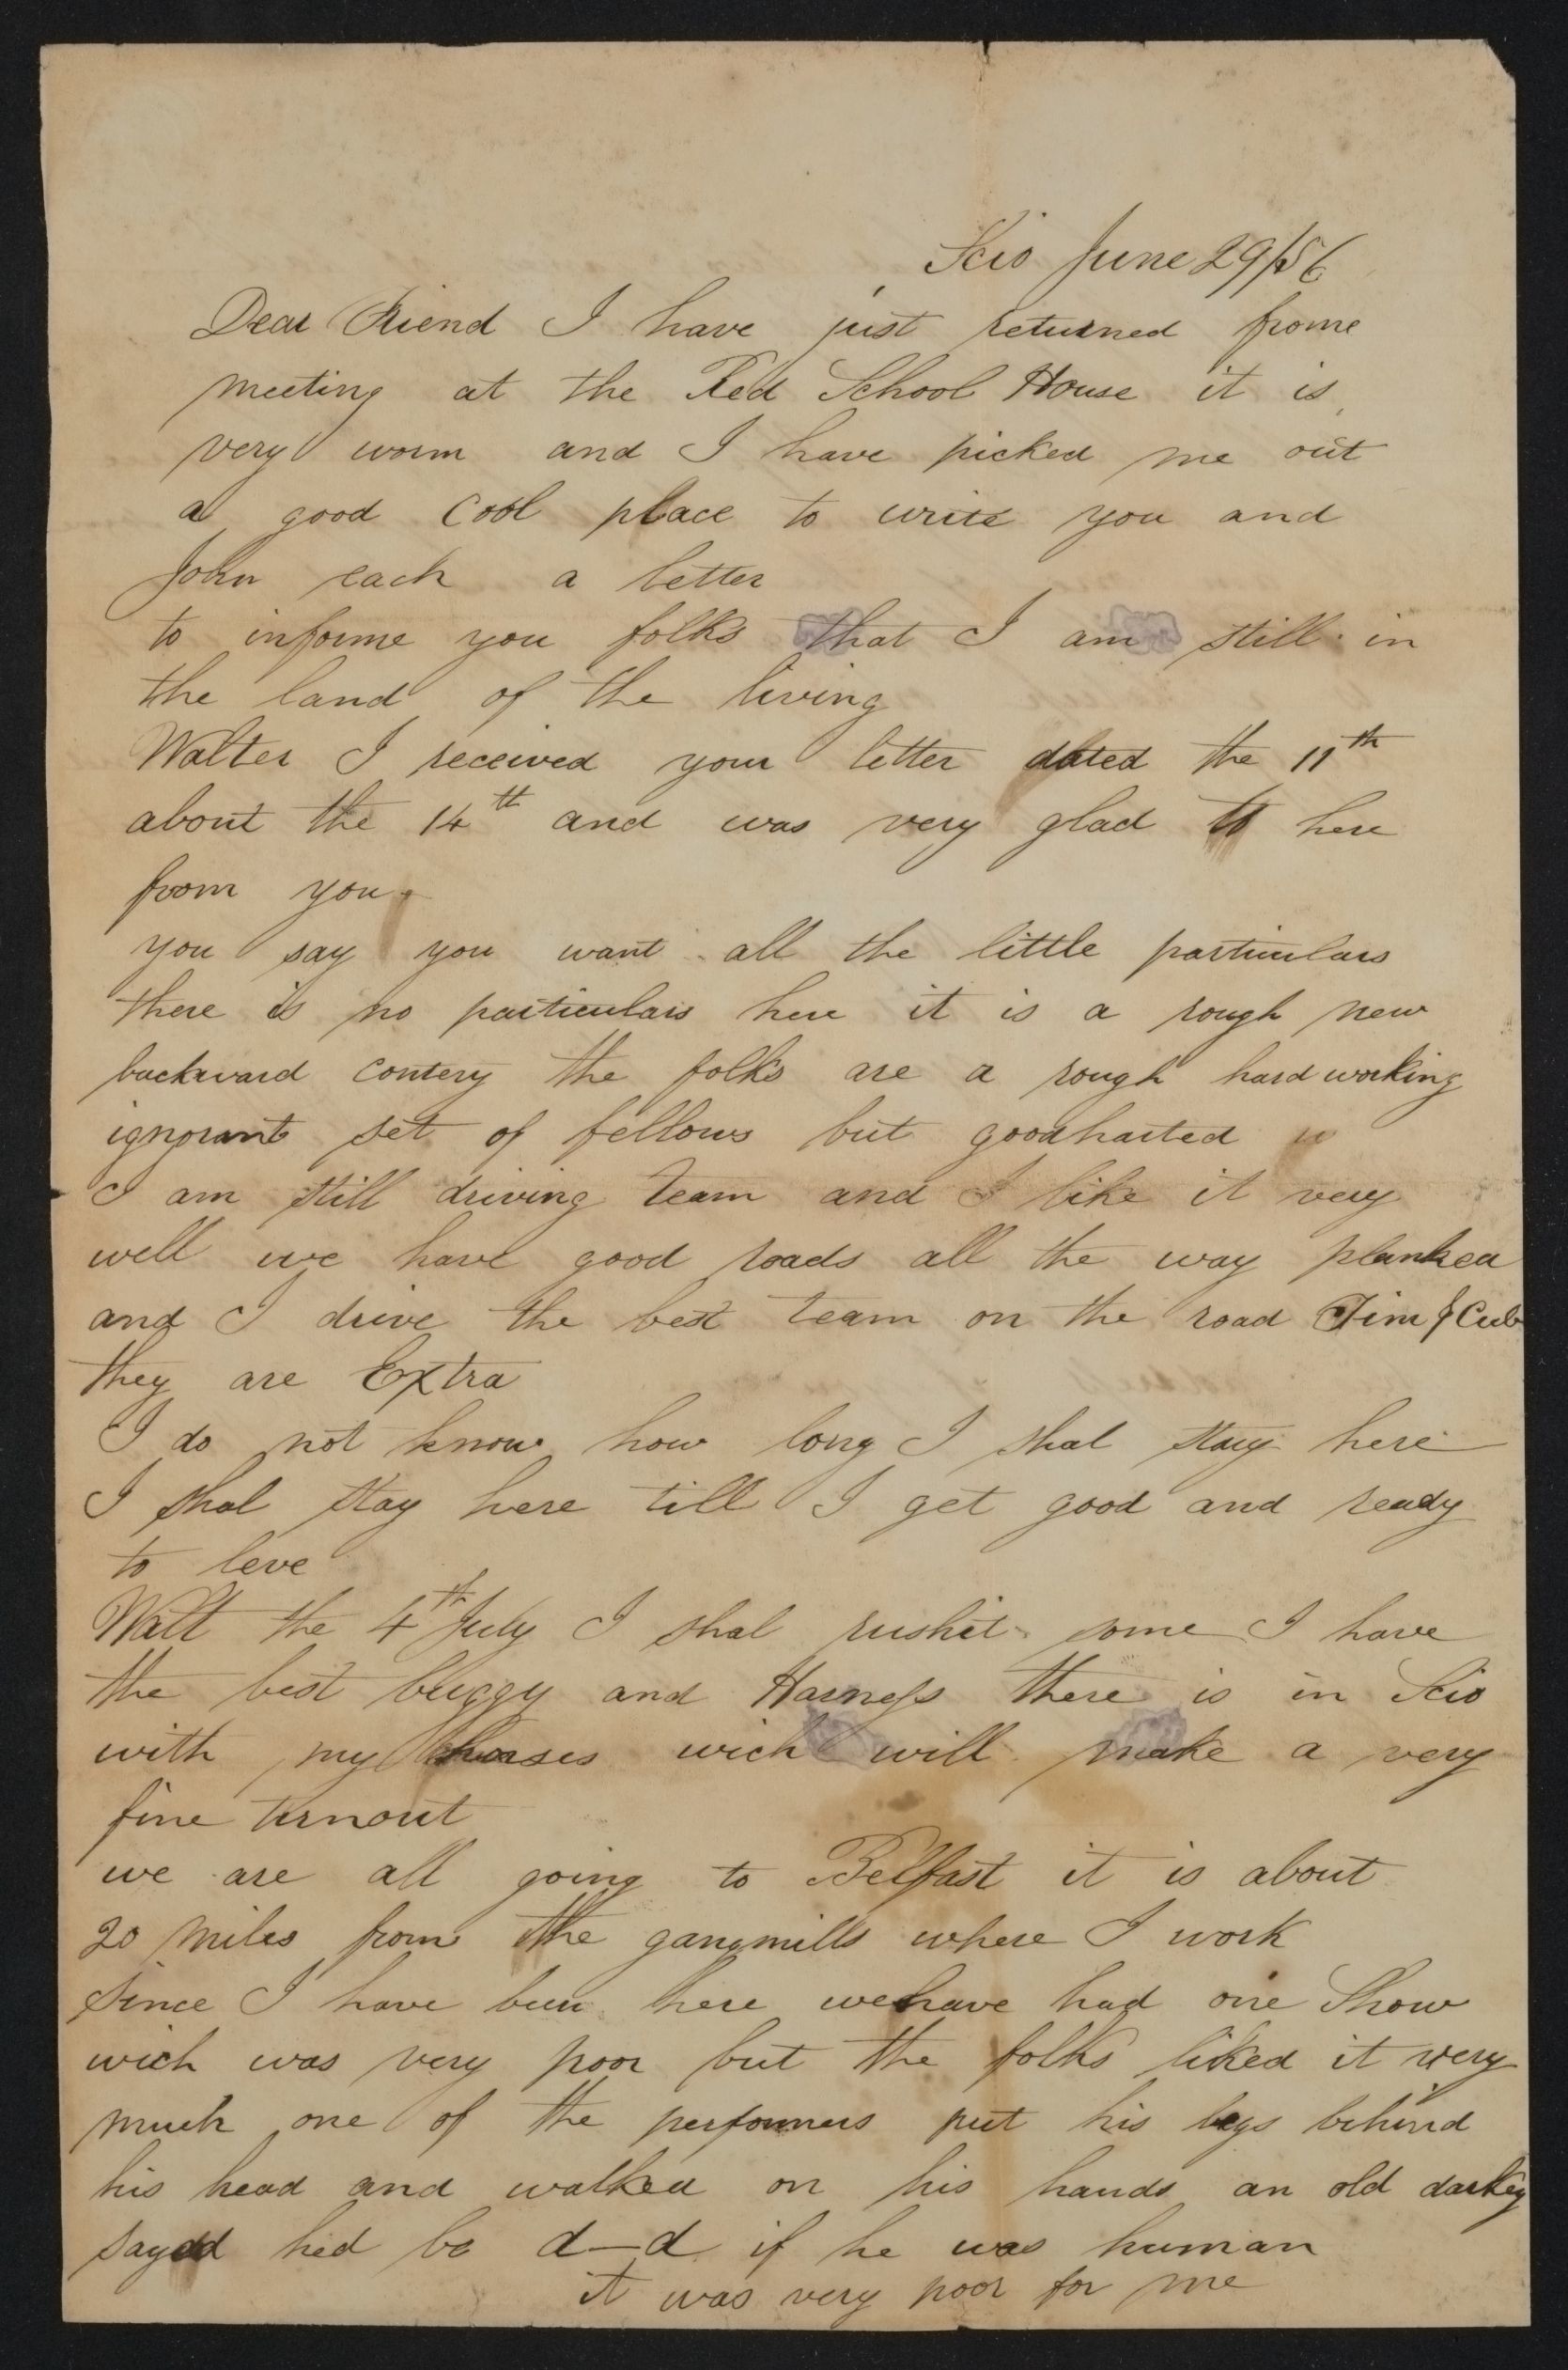 Scio June 29/56
Dear Friend I have just returned frome
meeting at the Red School House it is
very worm and I have picked me out
a good cool place to write you and
John each a letter
to informe you folks that I am still in
the land of the living
Walter I received your letter dated the 11th
about the 14th and was very glad to here
from you.
you say you want all the little particulars
there is no particulars here it is a rough new
backward contery the folks are a rough hard working
ignorant set of fellows but goodharted
I am still driving team and I like it very
well we have good roads all the way planked
and I drive the best team on the road Tim & Cub
they are Extra
I do not know how long I shal stay here
I shal stay here till I get good and ready
to leve
Walt the 4th July I shal rushit some I have
the best buggy and Harness there is in Scio
with my horses wich will make a very
fine turnout
we are all going to Belfast it is about
20 miles from the gangmills where I work
Since I have been here we have had one Show
wich was very poor but the folks liked it very
much one of the performers put his legs behind
his head and walked on his hands an old darkey
sayed hed be d—d if he was human
it was very poor for me